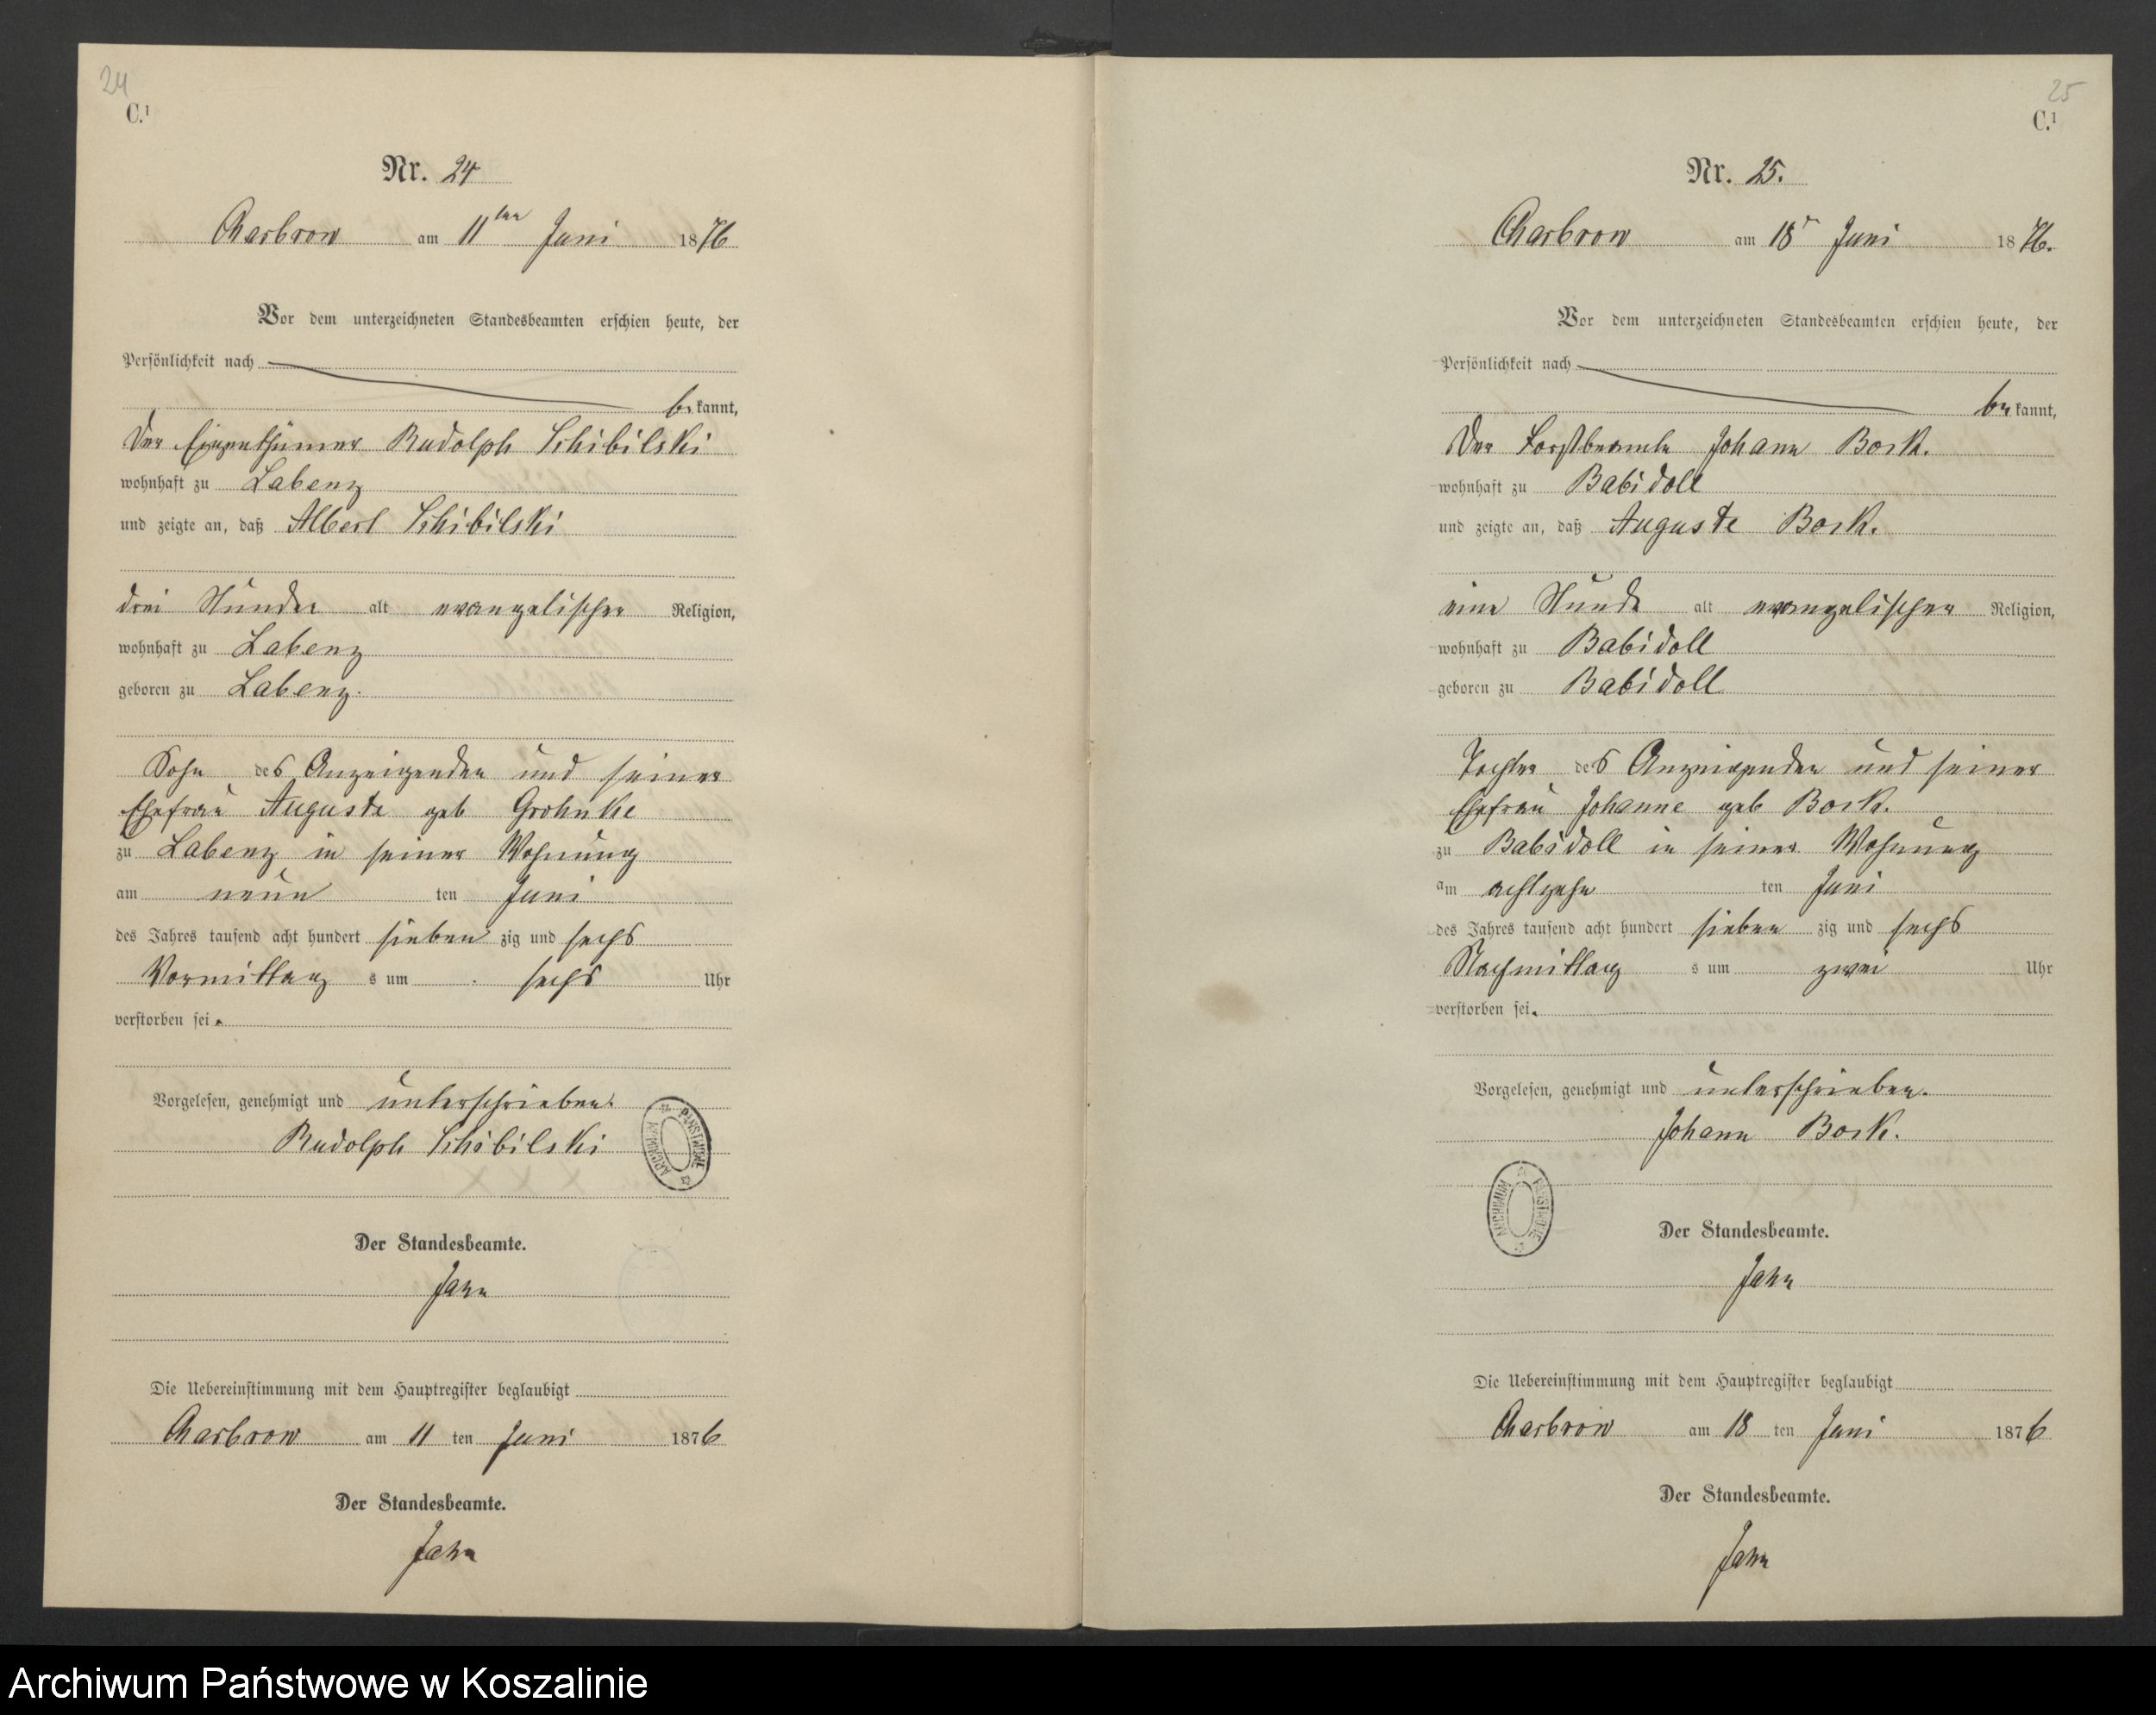 24
C.¹
Nr. 24
Charbrow am 11ten Juni 1876
Vor dem unterzeichneten Standesbeamten erschien heute, der
Persönlichkeit nach
bekannt,
Der Eigenthümer Rudolph Schibilski
wohnhaft zu Labenz
und zeigte an, daß Albert Schibilski
drei Stunden alt evangelischer Religion,
wohnhaft zu Labenz
geboren zu Labenz.
Sohn des Anzeigenden und seiner
Ehefrau Auguste geb Grohnke
zu Labenz in seiner Wohnung
am neun ten Juni
des Jahres tausend acht hundert sieben zig und sechs
Vormittag s um sechs Uhr
verstorben sei.
Vorgelesen, genehmigt und unterschrieben.
Rudolph Schibilski
ARCHIWUM PAŃSTWOWE
Der Standesbeamte.
Jahn
Die Uebereinstimmung mit dem Hauptregister beglaubigt
Charbrow am 11 ten Juni 1876
Der Standesbeamte.
Jahn
25
C.¹
Nr. 25.
Charbrow am 18t Juni 1876.
Vor dem unterzeichneten Standesbeamten erschien heute, der
Persönlichkeit nach
bekannt,
Der Forstbeamte Johann Bock.
wohnhaft zu Babidoll
und zeigte an, daß Auguste Bock.
eine Stunde alt evangelischer Religion,
wohnhaft zu Babidoll
geboren zu Babidoll
Tochter des Anzeigenden und seiner
Ehefrau Johanne geb Bock.
zu Babidoll in seiner Wohnung
am achtzehn ten Juni
des Jahres tausend acht hundert sieben zig und sechs
Nachmittag s um zwei Uhr
verstorben sei.
Vorgelesen, genehmigt und unterschrieben.
Johann Bock.
ARCHIWUM PAŃSTWOWE
Der Standesbeamte.
Jahn
Die Uebereinstimmung mit dem Hauptregister beglaubigt
Charbrow am 18 ten Juni 1876
Der Standesbeamte.
Jahn
Archiwum Państwowe w Koszalinie